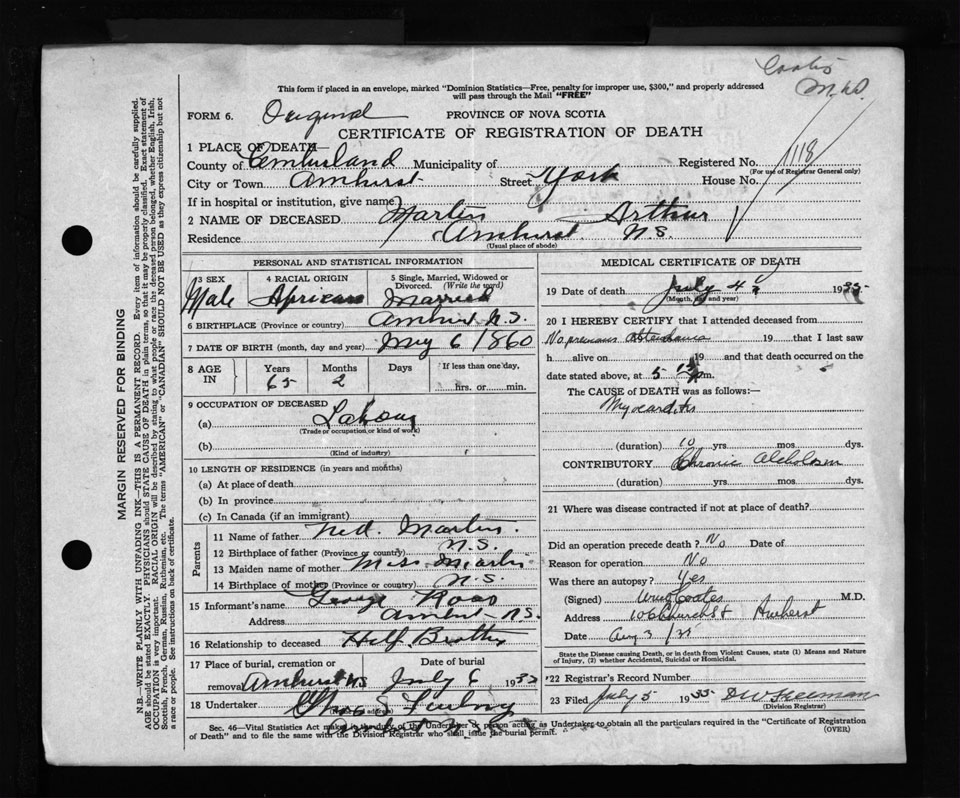 M.D.
This form if placed in an envelope, marked "Dominion Statistics—Free, penalty for improper use, $300," and properly addressed
will pass through the Mail "FREE"
FORM 6. Original PROVINCE OF NOVA SCOTIA
CERTIFICATE OF REGISTRATION OF DEATH
1 PLACE OF DEATH—
County of Cumberland Municipality of Registered No. 1118
(For use of Registrar General only)
City or Town Amherst Street York House No.
If in hospital or institution, give name
2 NAME OF DECEASED Martin Arthur
Residence Amherst N.S.
(Usual place of abode)
PERSONAL AND STATISTICAL INFORMATION
3 SEX 4 RACIAL ORIGIN 5 Single, Married, Widowed or Divorced. (Write the word)
Male African Married
6 BIRTHPLACE (Province or country) Amherst N.S.
7 DATE OF BIRTH (month, day and year) May 6 1860
8 AGE IN Years Months Days If less than one day,
65 2 hrs. or min.
9 OCCUPATION OF DECEASED
(a) Labour
(Trade or occupation or kind of work)
(b)
(Kind of industry)
10 LENGTH OF RESIDENCE (in years and months)
(a) At place of death
(b) In province
(c) In Canada (if an immigrant)
Parents
11 Name of father Ned. Martin
12 Birthplace of father (Province or country) N.S.
13 Maiden name of mother Miss Martin
14 Birthplace of mother (Province or country) N.S.
15 Informant's name George Ross
Address Amherst N.S.
16 Relationship to deceased Half Brother
17 Place of burial, cremation or removal Date of burial
Amherst N.S. July 6 193
18 Undertaker
(Address)
MEDICAL CERTIFICATE OF DEATH
19 Date of death July 4 1935
(Month, day and year)
20 I HEREBY CERTIFY that I attended deceased from
No previous attendance 19 that I last saw
h alive on 19 and that death occurred on the
date stated above, at 5 15 pm.
The CAUSE of DEATH was as follows:—
Myocarditis
(duration) 10 yrs. mos. dys.
CONTRIBUTORY Chronic Alcholism
(duration) yrs. mos. dys.
21 Where was disease contracted if not at place of death?
Did an operation precede death? No Date of
Reason for operation No
Was there an autopsy? Yes
(Signed) Coates M.D.
Address 106 Church St Amherst
Date Aug 3
State the Disease causing Death, or in death from Violent Causes, state (1) Means and Nature
of Injury, (2) whether Accidental, Suicidal or Homicidal.
22 Registrar's Record Number
23 Filed July 5 1935 Freeman
(Division Registrar)
Sec. 46—Vital Statistics Act makes it the duty of the Undertaker or person acting as Undertaker to obtain all the particulars required in the "Certificate of Registration
of Death" and to file the same with the Division Registrar who shall issue the burial permit. (OVER)
MARGIN RESERVED FOR BINDING
N.B.—WRITE PLAINLY WITH UNFADING INK—THIS IS A PERMANENT RECORD. Every item of information should be carefully supplied.
AGE should be stated EXACTLY. PHYSICIANS should STATE CAUSE OF DEATH in plain terms, so that it may be properly classified. Exact statement of
OCCUPATION is very important. RACIAL ORIGIN will be described by stating to what people or race the deceased person belonged, whether English, Irish,
Scottish, French, German, Russian, Ruthenian, etc. The terms "AMERICAN" or "CANADIAN" SHOULD NOT BE USED as they express citizenship but not
a race or people. See instructions on back of certificate.